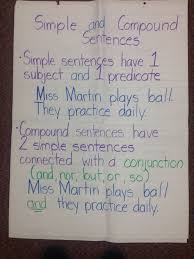 Simple and Compound
Sentences
• Simple sentences have 1
subject and 1 predicate
Miss Martin plays ball.
They practice daily.
• Compound sentences have
2 simple sentences
connected with a conjunction
(and, nor, but, or, so)
Miss Martin plays ball
and they practice daily.